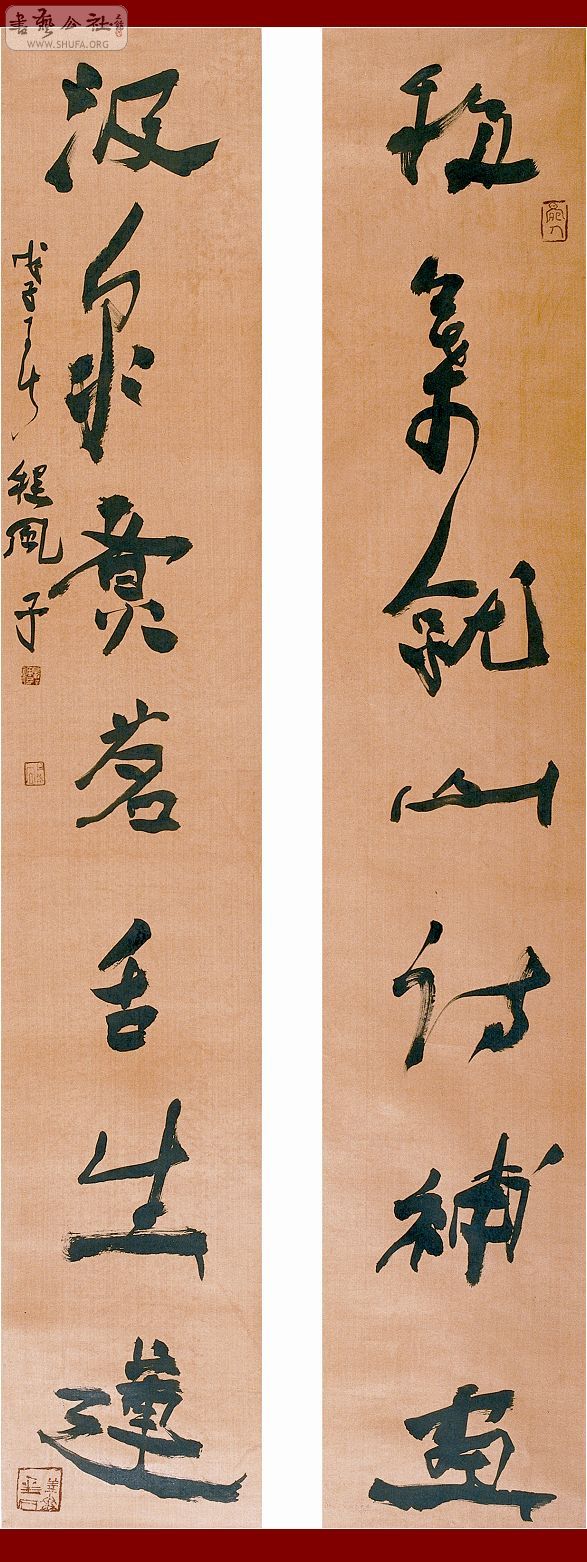 書藝公社
WWW.SHUFA.ORG
移案就山詩補畫
汲泉煮茗舌生蓮
戊子 程風子